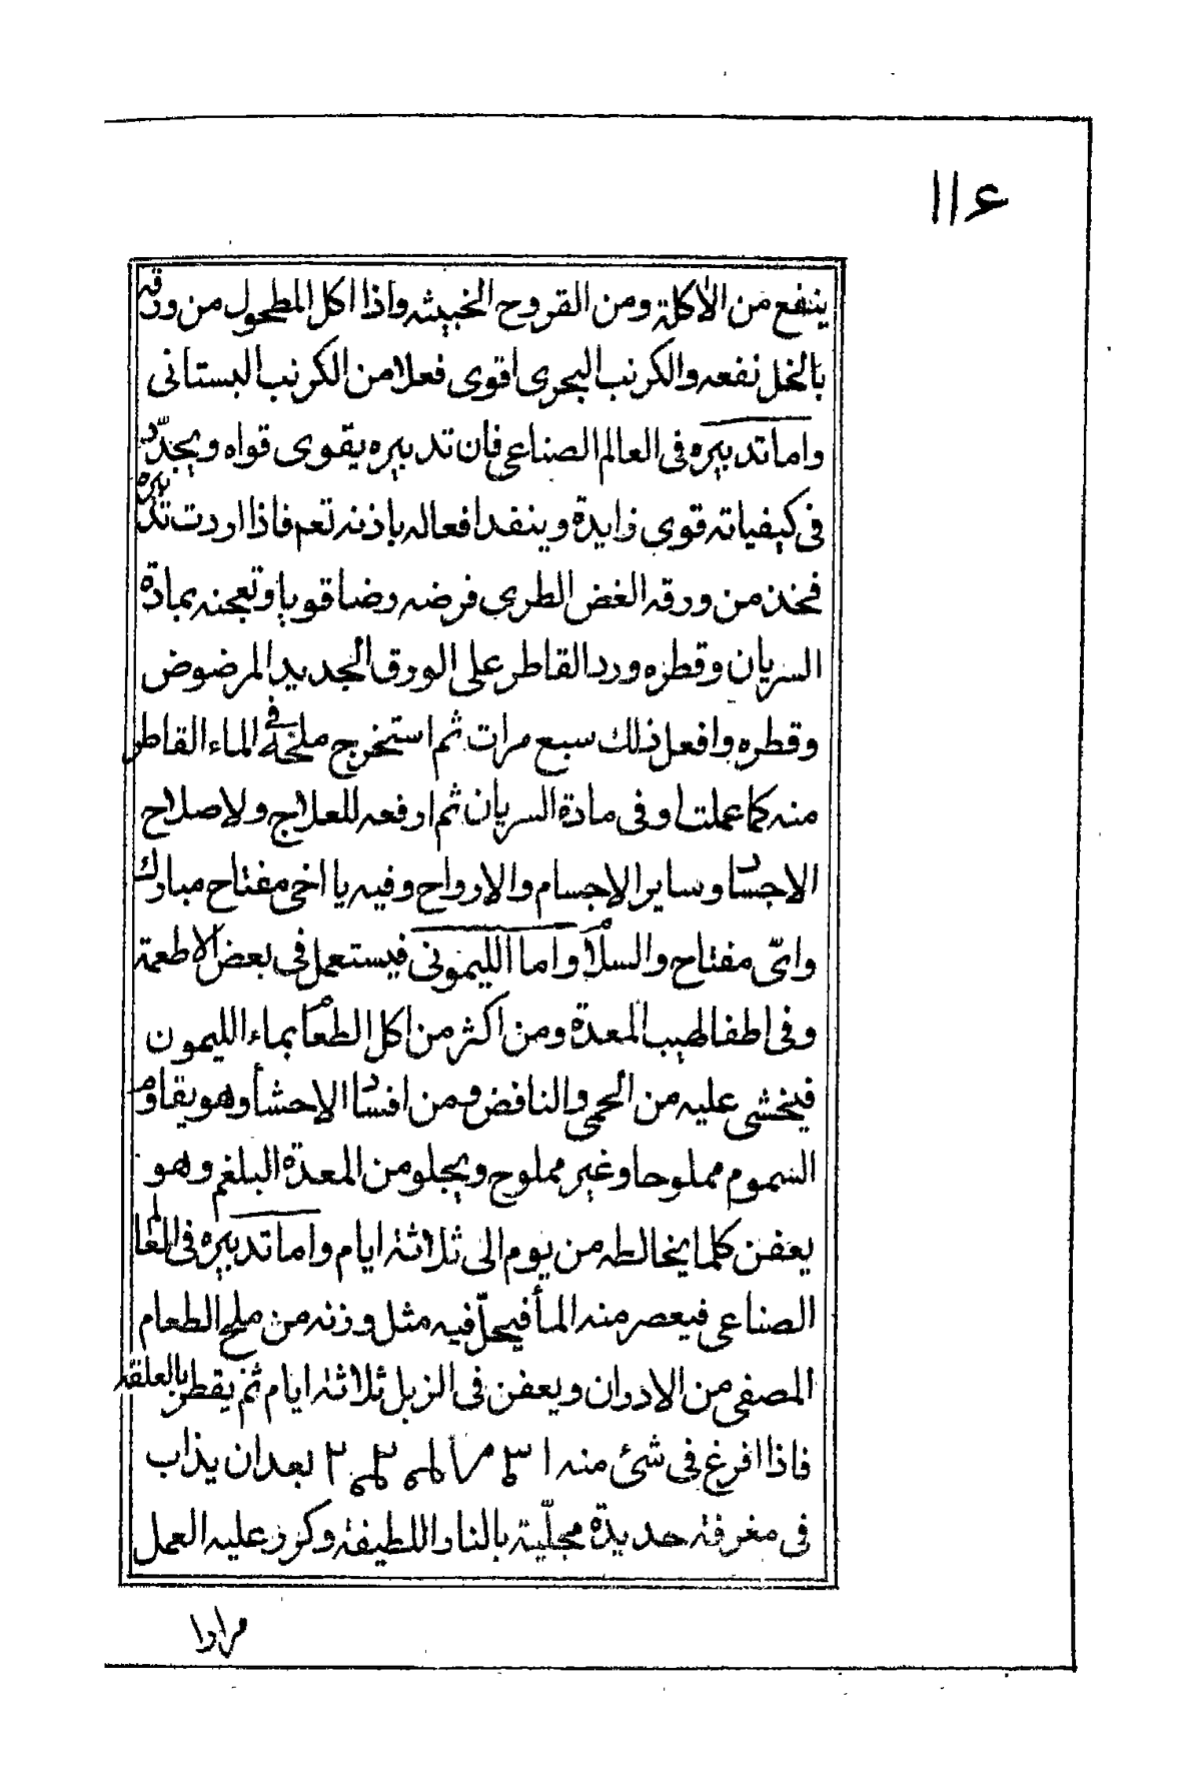 ١١٤
ينفع من الأكلة ومن القروح الخبيثه واذا اكل المطحول من ورقه
بالخل نفعه والكرنب البحرى اقوى فعلا من الكرنب البستانى
واما تدبيره فى العالم الصناعى فان تدبيره يقوى قواه ويجدّد
فى كيفياته قوى زايدة وينفد افعاله باذنه تعم فاذا اردت تدبيره
فخذ من ورقه الغض الطرى فرضه رضا قويا وتعجنه بمادة
السريان وقطره ورد القاطر على الورق الجديد المرضوض
وقطره وافعل ذلك سبع مرات ثم استخرج ملحه فى الماء القاطر
منه كما عملت او فى مادة السريان ثم ارفعه للعلاج ولاصلاح
الاجساد وساير الاجسام والارواح وفيه يا اخى مفتاح مبارك
واىّ مفتاح والسلام واما الليمونى فيستعمل فى بعض الاطعمة
وفى اطفا لهيب المعدة ومن اكثر من اكل الطعام بماء الليمون
فيخشى عليه من الحمى والنافض ومن افساد الاحشأ وهو يقاوم
السموم مملوحا وغير مملوح ويجلو من المعدة البلغم وهو
يعفن كلما يخالطه من يوم الى ثلاثة ايام واما تدبيره فى العالم
الصناعى فيعصر منه المأ فيحلّ فيه مثل وزنه من ملح الطعام
المصفى من الادران ويعفن فى الزبل ثلاثة ايام ثم يقطر بالعلقة
فاذا افرغ فى شئ منه بعد ان يذاب
فى مغرفة حديدة مجليّة بالنار اللطيفة وكرر عليه العمل
مرارا